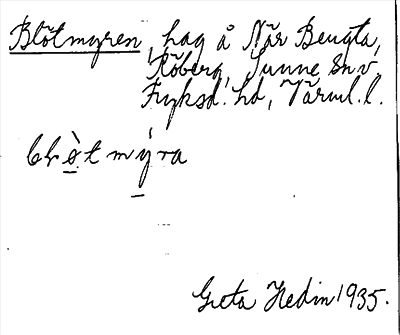 Blötmyren, hag å När Bengta,
Röberg, Sunne Sn v.
Fryksd. hd, Värml. l.
blö̀tmýra
Greta Hedin 1935.